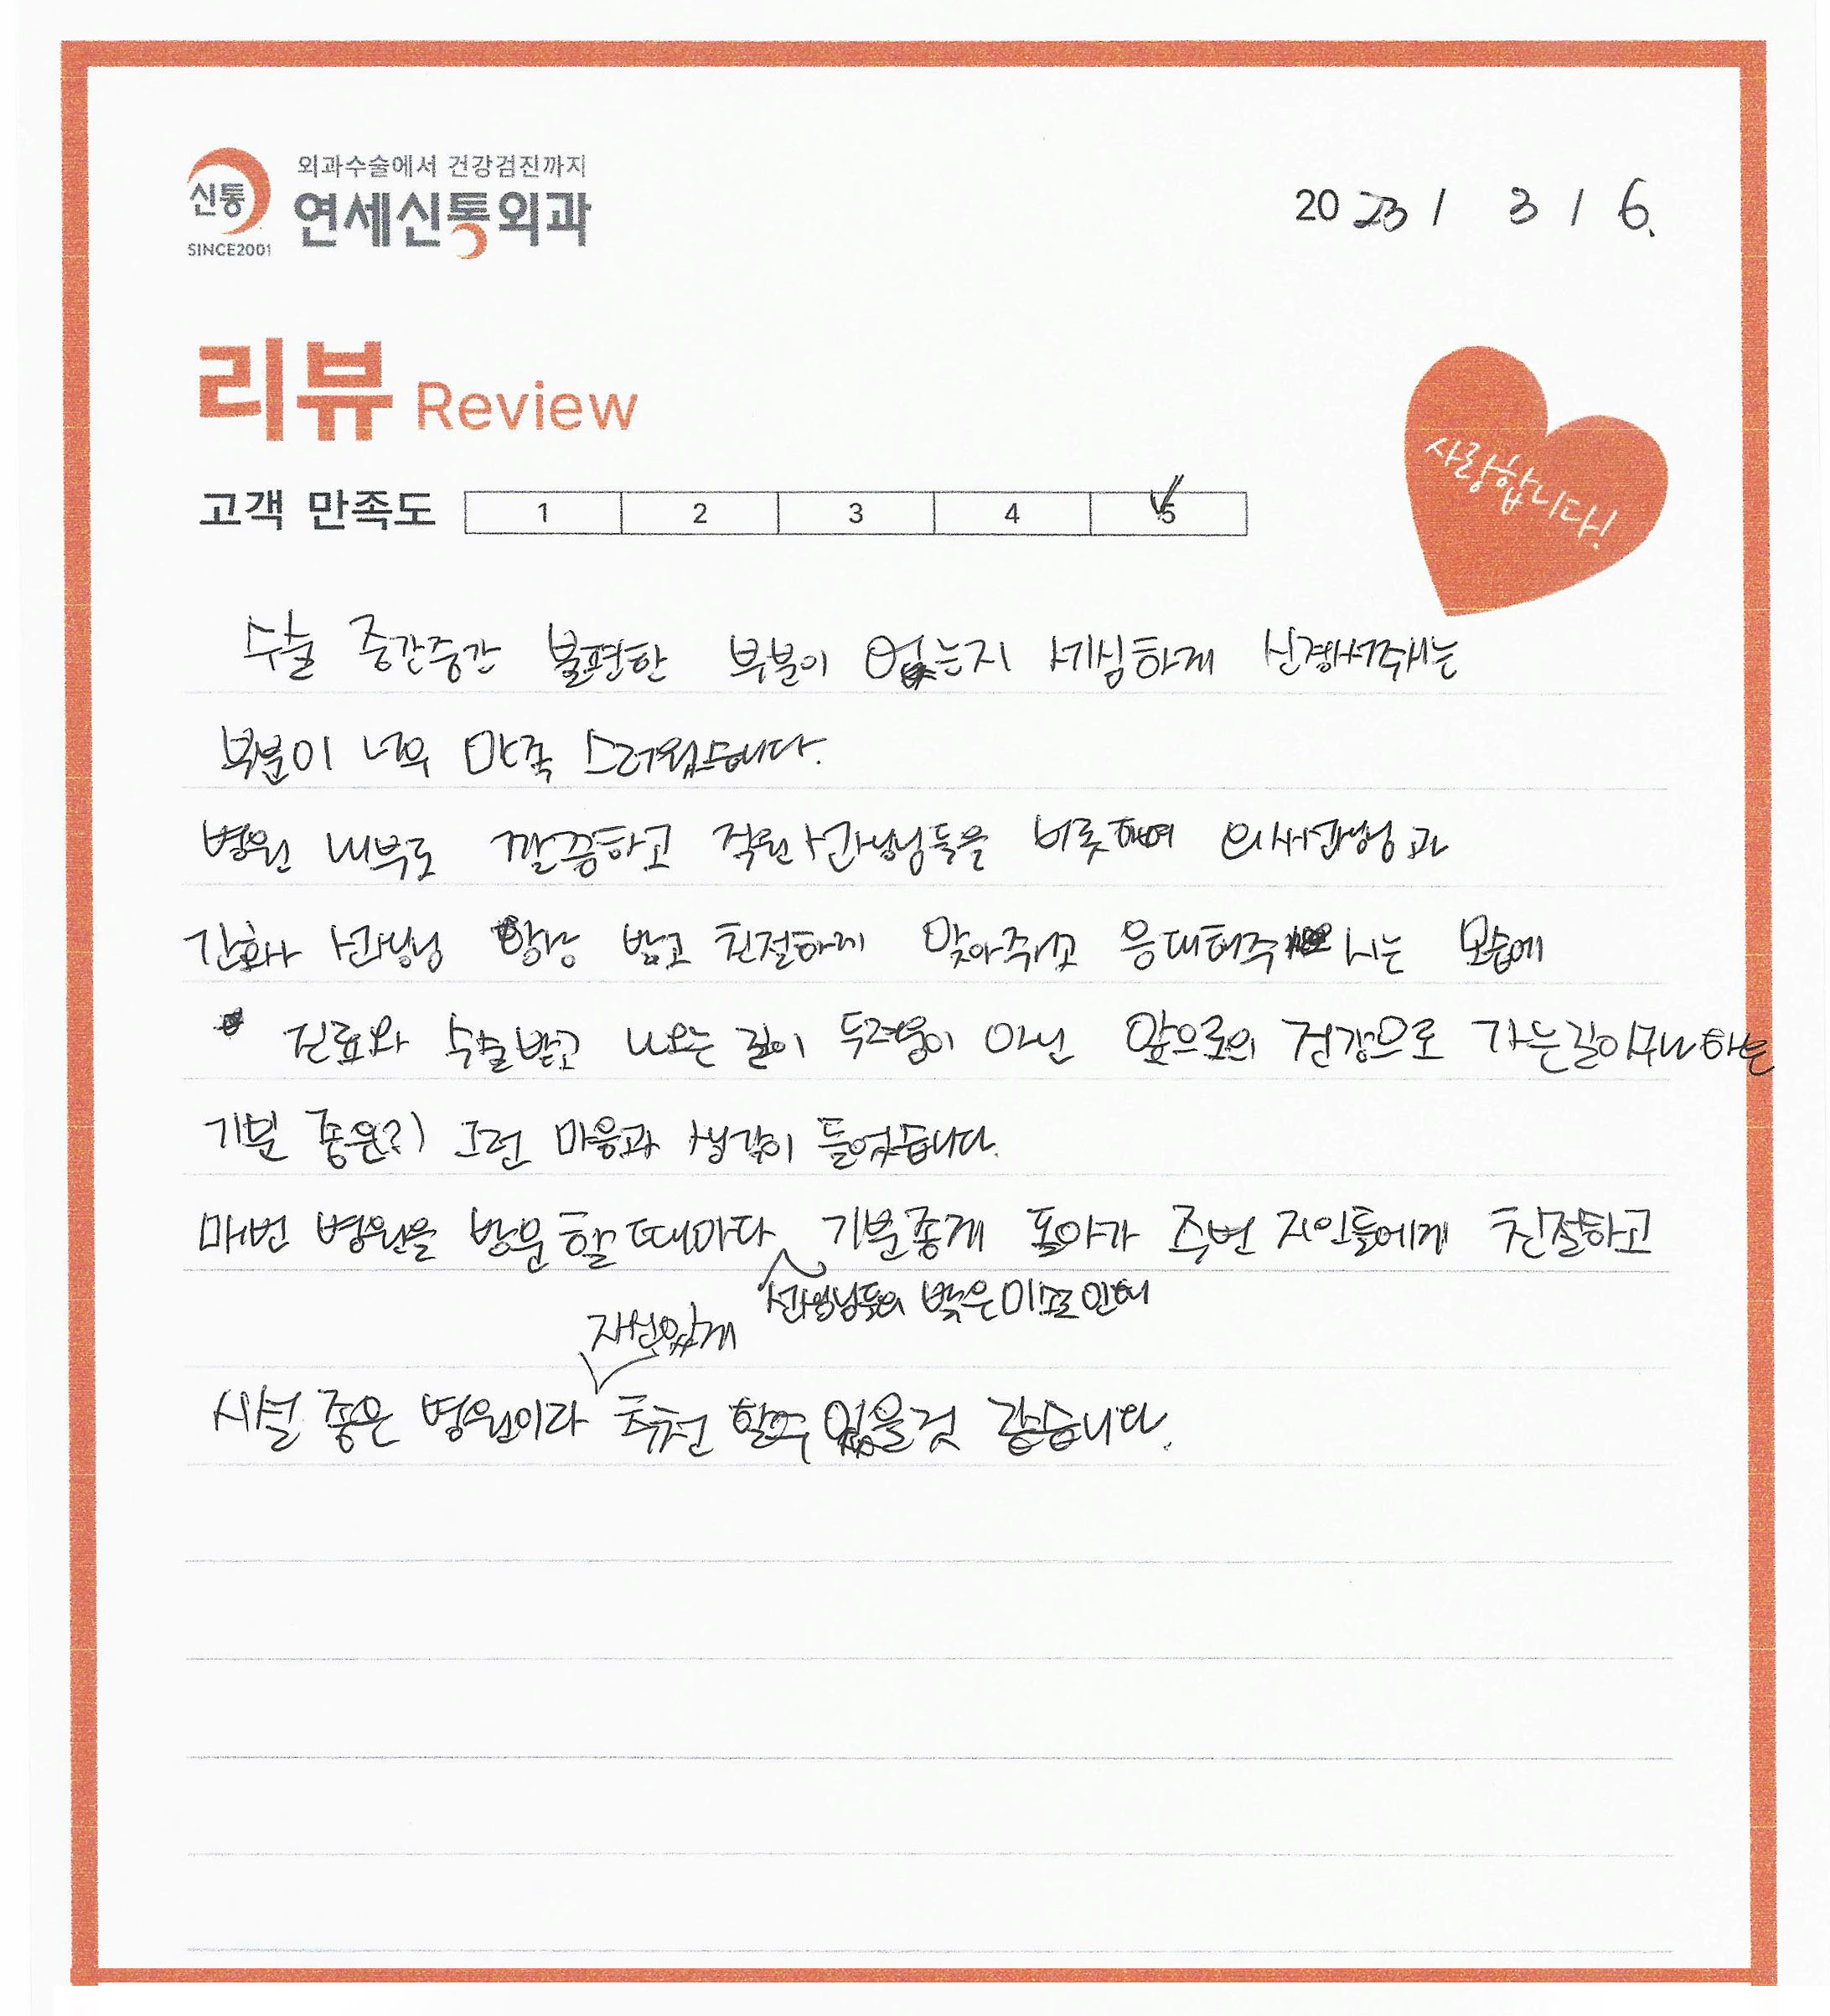 외과수술에서 건강검진까지
신통
연세신통외과
SINCE2001
2023 / 3 / 6.
리뷰 Review
사랑합니다!
고객 만족도 1 2 3 4 5
수술 중간중간 불편한 부분이 없는지 세심하게 신경써주시는
부분이 너무 만족 스러웠습니다.
병원 내부도 깔끔하고 직원선생님들을 비롯하여 의사선생님과
간호사 선생님 항상 밝고 친절하게 맞아주시고 응대해주시는 모습에
진료와 수술받고 나오는 길이 두려움이 아닌 앞으로의 건강으로 가는길이구나하는
기분 좋은?) 그런 마음과 생각이 들었습니다.
매번 병원을 방문할때마다 기분좋게 돌아가 주변 지인들에게 친절하고
선생님들의 밝은미소로 인해
자신있게
시설 좋은 병원이라 추천 할수 있을것 같습니다.